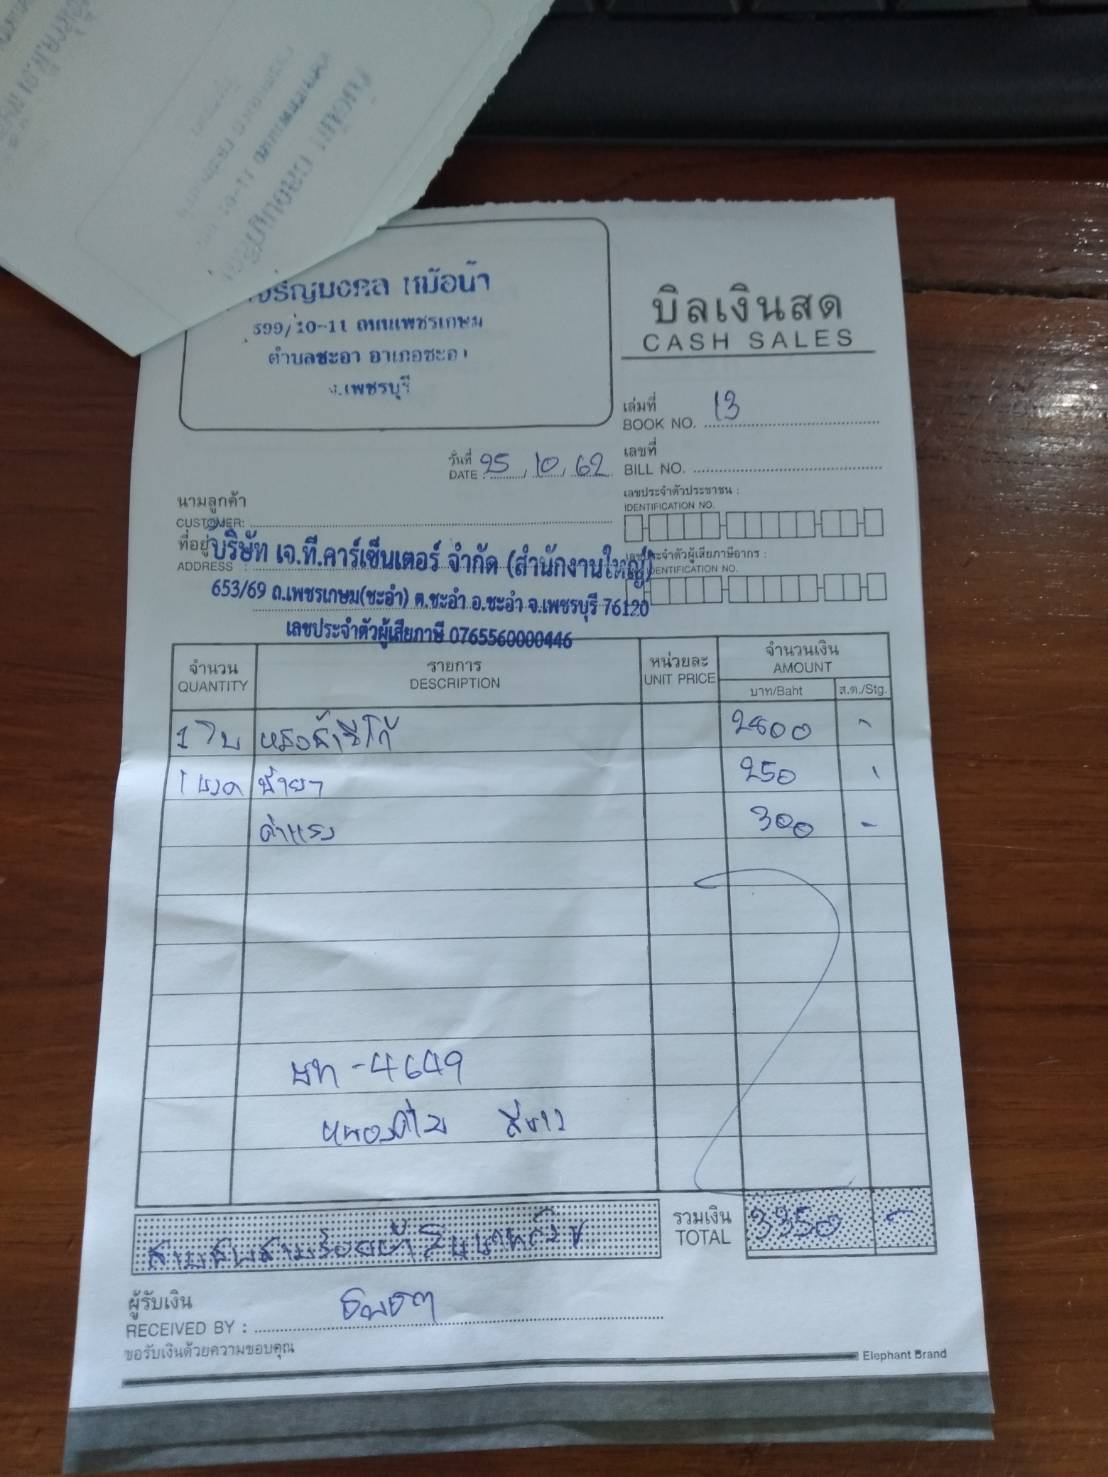 เจริญมงคล หม้อน้ำ
599/10-11 ถนนเพชรเกษม
ตำบลชะอำ อำเภอชะอำ
จ.เพชรบุรี
บิลเงินสด
CASH SALES
เล่มที่ 13
BOOK NO.
เลขที่
BILL NO.
วันที่ 25, 10, 62
DATE
นามลูกค้า
CUSTOMER:
เลขประจำตัวประชาชน :
IDENTIFICATION NO.
ที่อยู่
ADDRESS :
บริษัท เจ.ที.คาร์เซ็นเตอร์ จำกัด (สำนักงานใหญ่)
เลขประจำตัวผู้เสียภาษีอากร :
IDENTIFICATION NO.
653/69 ถ.เพชรเกษม(ชะอำ) ต.ชะอำ อ.ชะอำ จ.เพชรบุรี 76120
เลขประจำตัวผู้เสียภาษี 0765560000446
จำนวน รายการ หน่วยละ จำนวนเงิน
QUANTITY DESCRIPTION UNIT PRICE AMOUNT
บาท/Baht ส.ต./Stg.
1 ใบ 2800 -
1 ขวด น้ำยา 250 -
ค่าแรง 300 -
ชท-4649
สีขาว
รวมเงิน 3350 -
TOTAL
สามพันสามร้อยห้าสิบบาทถ้วน
ผู้รับเงิน
RECEIVED BY :
ขอรับเงินด้วยความขอบคุณ
Elephant Brand